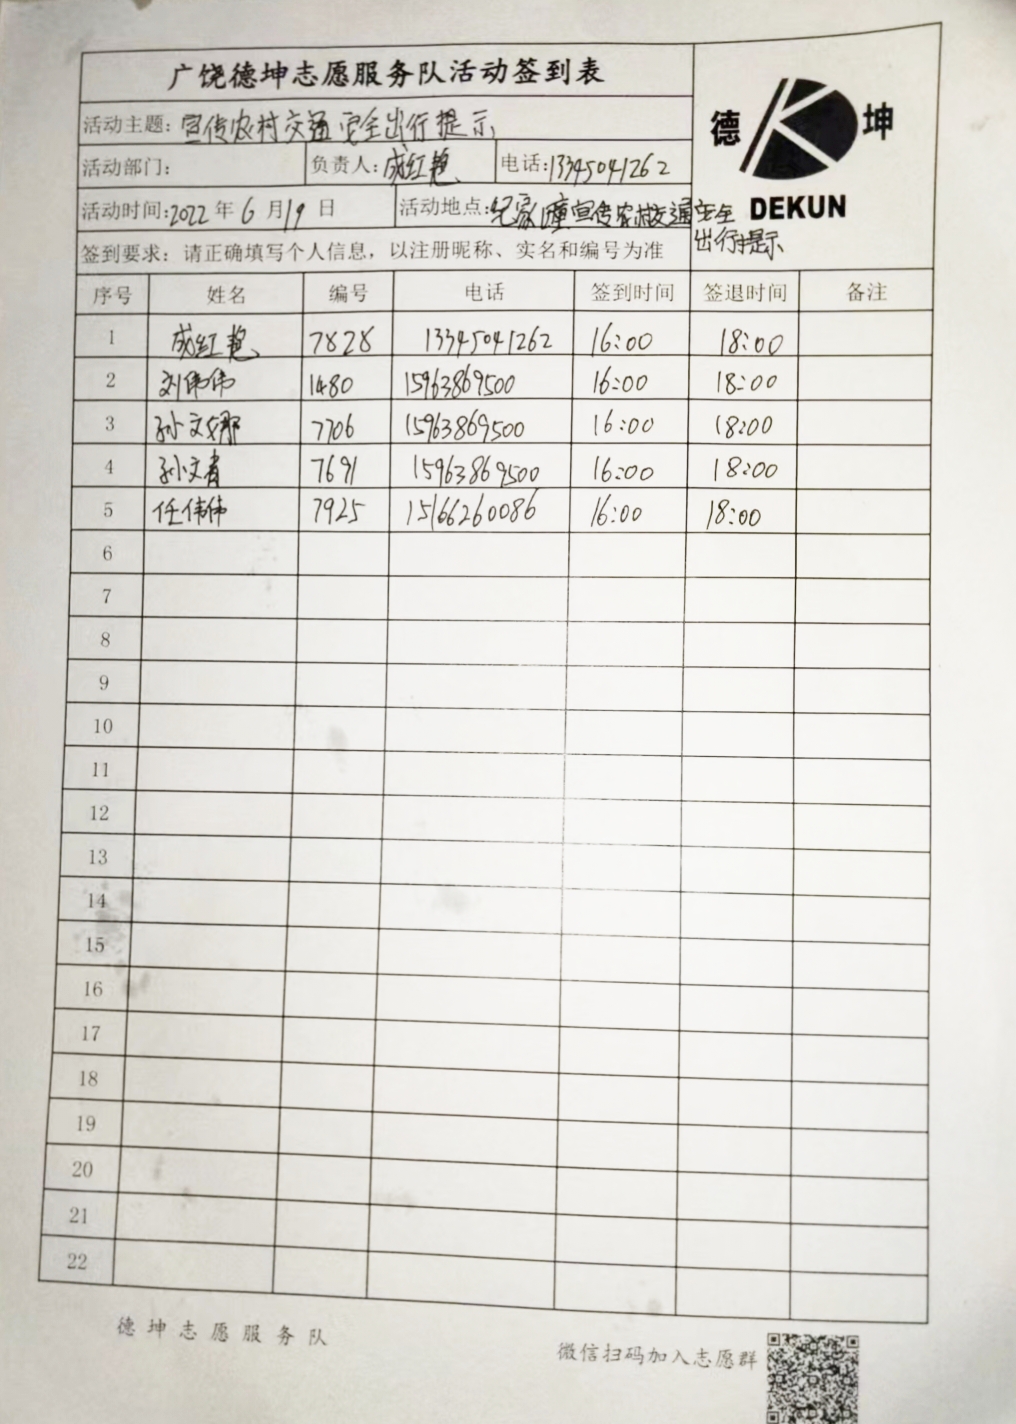 广饶德坤志愿服务队活动签到表
德 坤
DEKUN
活动主题：宣传农村交通安全出行提示
活动部门： 负责人：成红艳 电话：13345041262
活动时间：2022年6月19日 活动地点：纪家疃宣传农村交通安全出行提示
签到要求：请正确填写个人信息，以注册昵称、实名和编号为准
序号 姓名 编号 电话 签到时间 签退时间 备注
1 成红艳 7828 13345041262 16:00 18:00
2 刘伟伟 1480 15963869500 16:00 18:00
3 孙文娜 7706 15963869500 16:00 18:00
4 孙文青 7691 15963869500 16:00 18:00
5 任伟伟 7925 15166260086 16:00 18:00
6
7
8
9
10
11
12
13
14
15
16
17
18
19
20
21
22
德坤志愿服务队
微信扫码加入志愿群